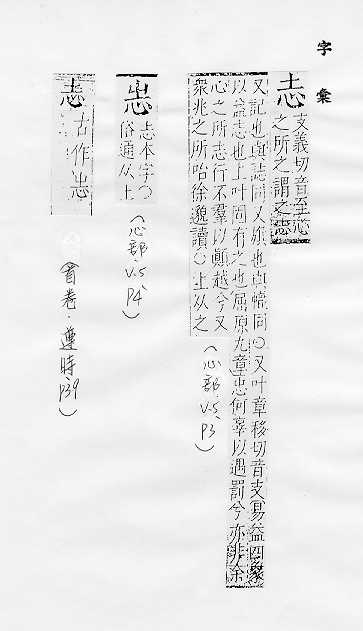 字彙
志 支義切音至心
之所之謂之志
又記也與誌同又旗也與幟同○又叶章移切音支易益四象
以益志也上叶固有之也屈原九章忠何辜以遇罰兮亦非余
心之所志行不羣以顛越兮又
衆兆之所咍徐邈讀○上从之
(心部.V.5、P3)
志本字○
俗通从士
(心部.V.5、P4)
志 古作
(首卷.遵時、P39)